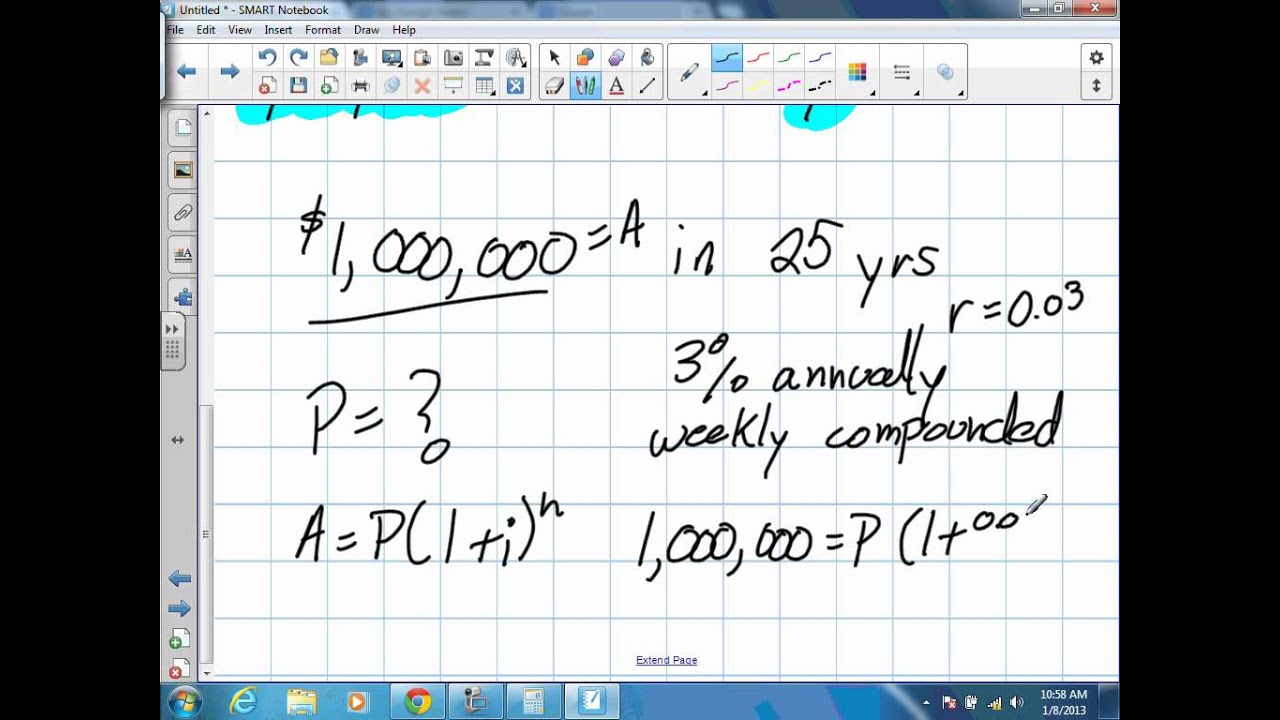 Untitled * - SMART Notebook
File Edit View Insert Format Draw Help
$1,000,000 = A in 25 yrs
r = 0.03
P = ?
3% annually
weekly compounded
A = P(1+i)^n
1,000,000 = P (1+
Extend Page
10:58 AM
1/8/2013